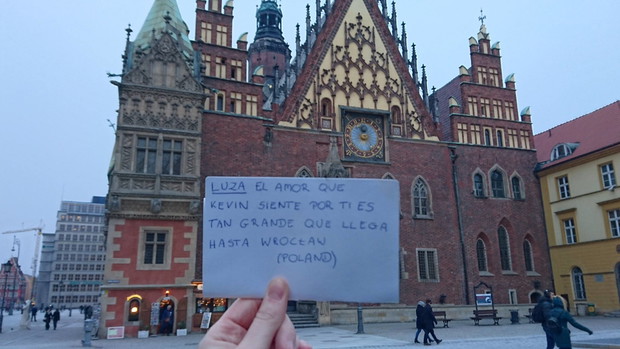 LUZA EL AMOR QUE
KEVIN SIENTE POR TI ES
TAN GRANDE QUE LLEGA
HASTA WROCŁAW
(POLAND)